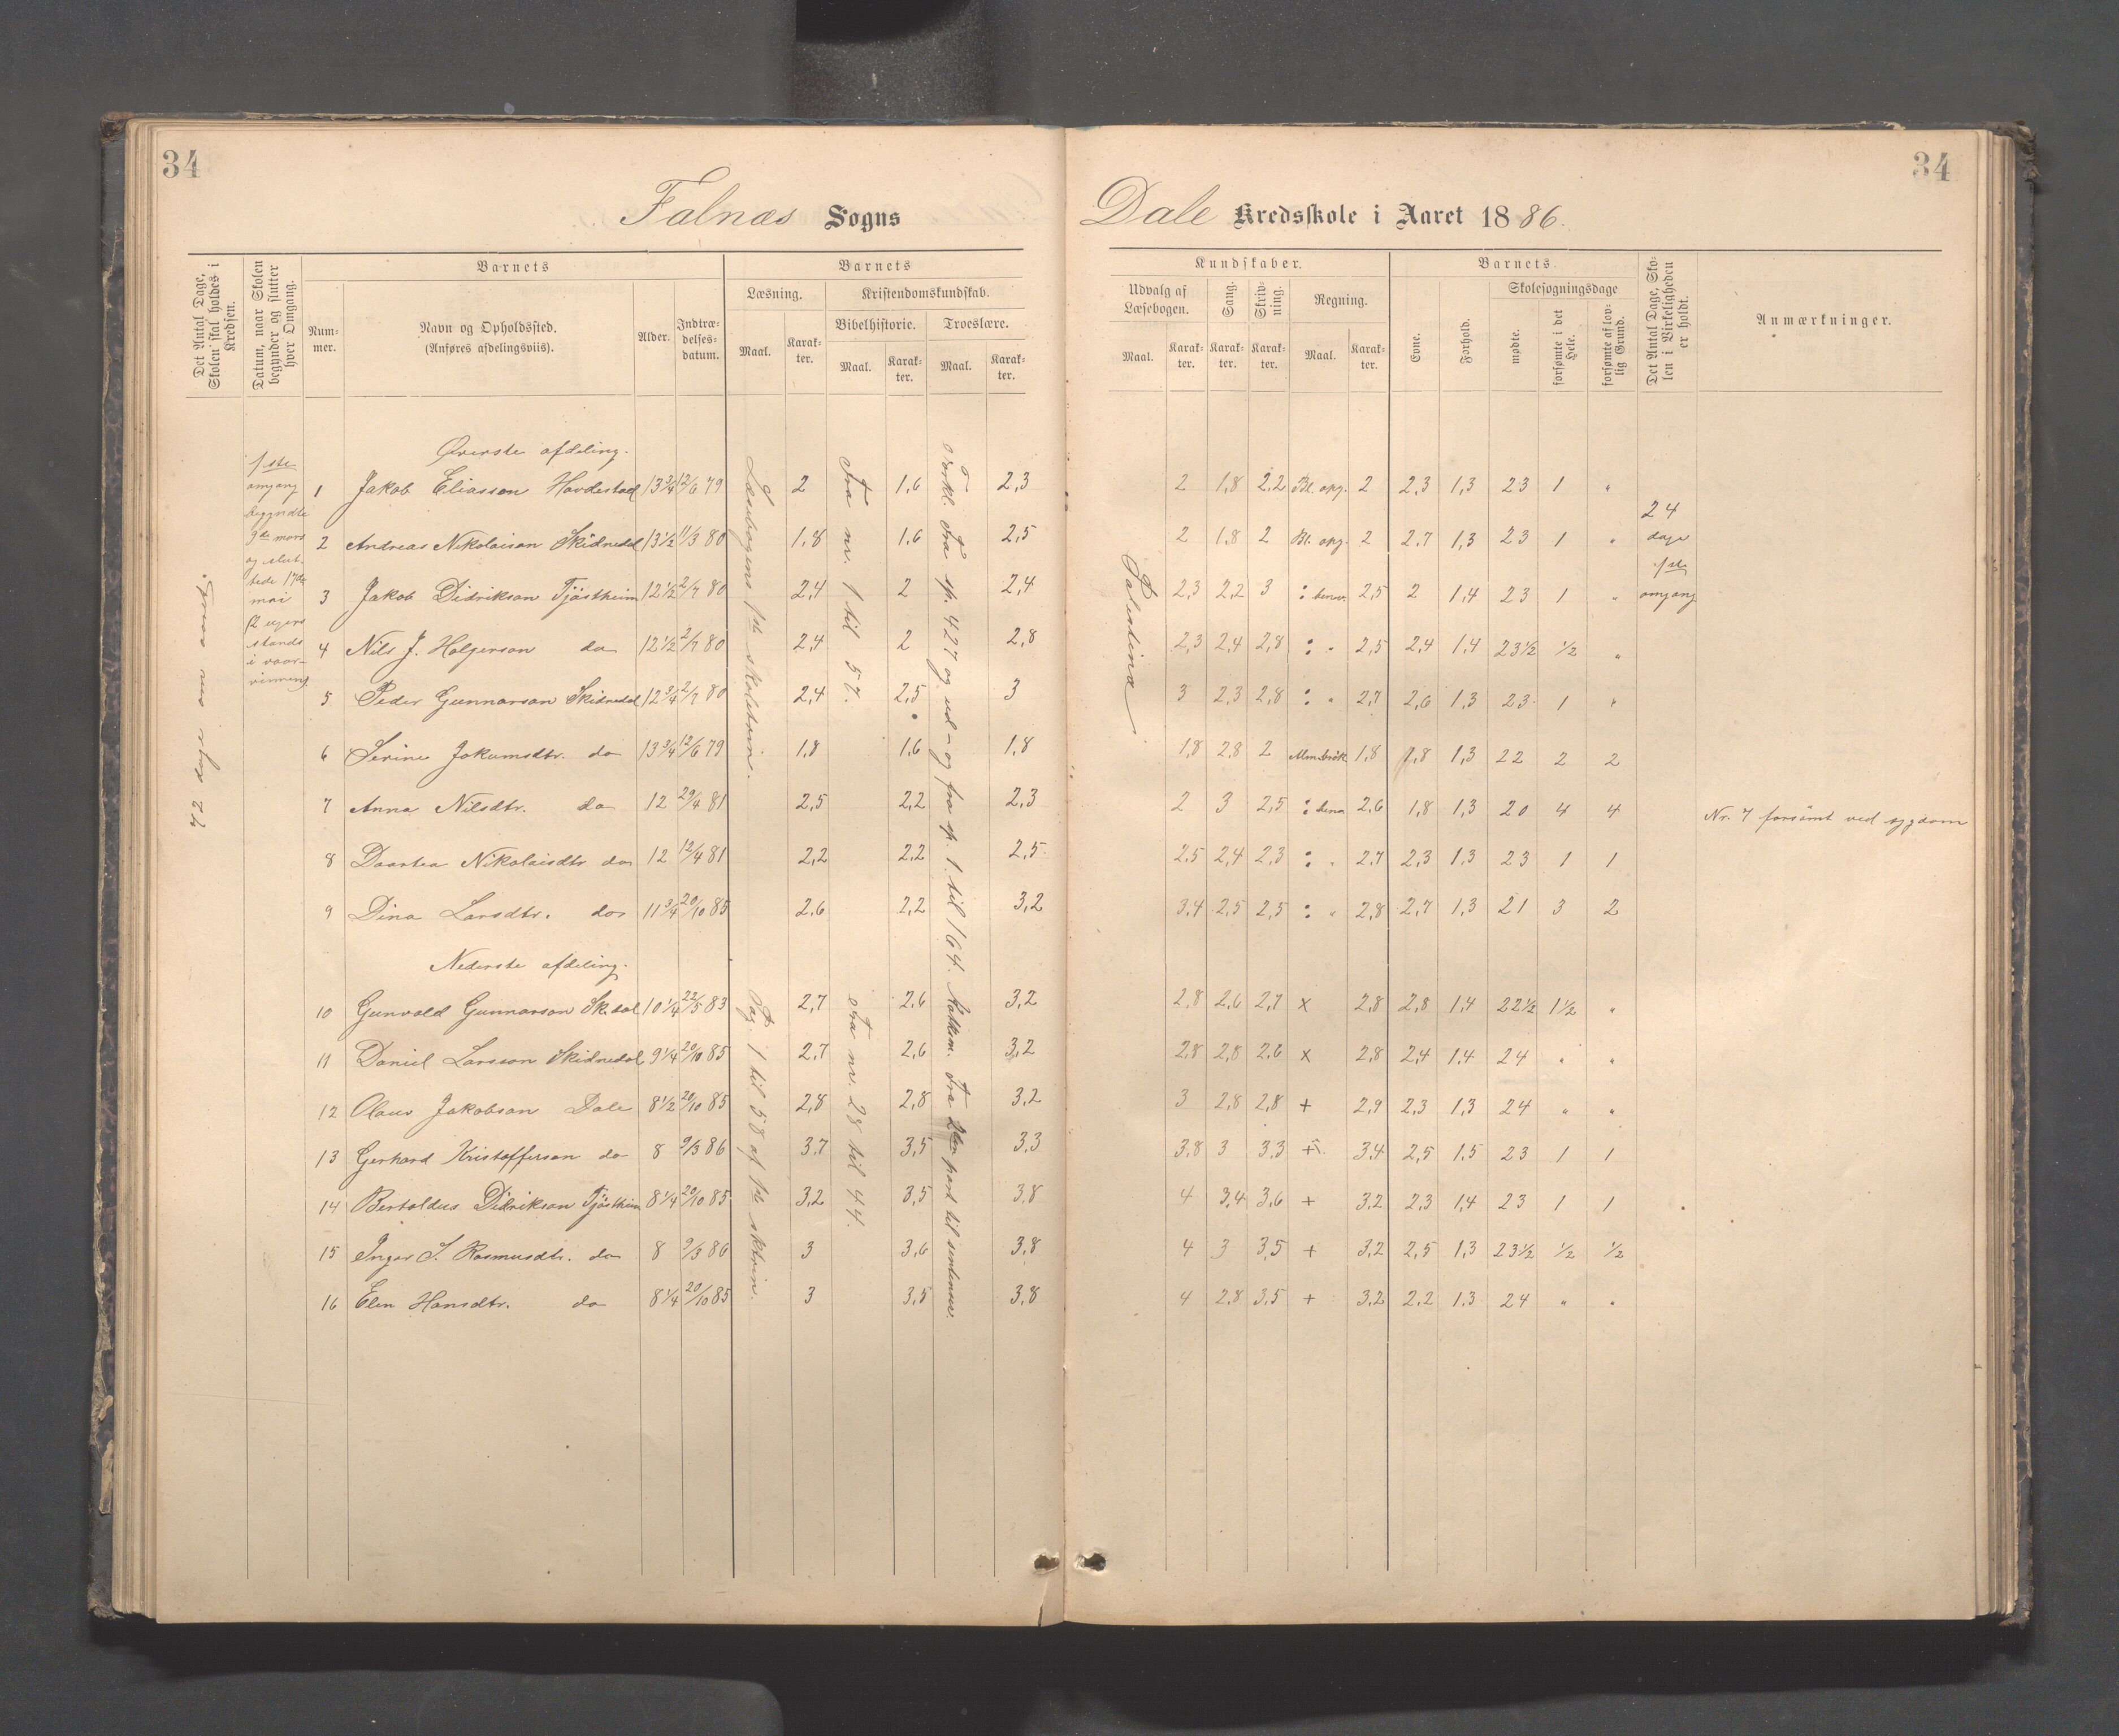 34
34
Falnæs Sogns
Dale Kredsskole i Aaret 1886.
Det Antal Dage, Skolen skal holdes i Kredsen.
Datum, naar Skolen begynder og slutter hver Omgang.
Barnets
Nummer.
Navn og Opholdssted.
(Anføres afdelingsviis).
Alder.
Indtrædelsesdatum.
Barnets
Læsning.
Maal.
Karakter.
Kristendomskundskab.
Bibelhistorie.
Maal.
Karakter.
Troeslære.
Maal.
Karakter.
Kundskaber.
Udvalg af Læsebogen.
Maal.
Karakter.
Sang.
Karakter.
Skrivning.
Karakter.
Regning.
Maal.
Karakter.
Barnets
Evne.
Forhold.
Skolesøgningsdage
mødte.
forsømte i det Hele.
forsømte af lovlig Grund.
Det Antal Dage, Skolen i Virkeligheden er holdt.
Anmærkninger.
1ste omgang begyndte 9de mars og sluttede 17de mai
i vaar-
Øverste afdeling.
Læsebogens 1ste skoletrin.
Fra nr. 1 til 57.
Forkl. Fra sp. 427 og ud – og fra sp. 1 til 164. Katkm. Fra 2den part til sentenser.
Palestina
24 dage 1ste omgang
1 Jakob Eliasson Hovdestad 13 3/4 12/6 79 2 1,6 2,3 2 1,8 2,2 Bl. opg. 2 2,3 1,3 23 1 "
2 Andreas Nikolaison Skidnedal 13 1/2 11/3 80 1,8 1,6 2,5 2 1,8 2 Bl. opg. 2 2,7 1,3 23 1 "
3 Jakob Didrikson Tjöstheim 12 1/2 2/7 80 2,4 2 2,4 2,3 2,2 3 : benæv. 2,5 2 1,4 23 1 "
4 Nils J. Holgerson do 12 1/2 2/7 80 2,4 2 2,8 2,3 2,4 2,8 : " 2,5 2,4 1,4 23 1/2 1/2 "
5 Peder Gunnarson Skidnedal 12 3/4 2/7 80 2,4 2,5 3 3 2,3 2,8 : " 2,7 2,6 1,3 23 1 "
6 Serine Jokumsdtr. do 13 3/4 12/6 79 1,8 1,6 1,8 1,8 2,8 2 Alm. brök 1,8 1,8 1,3 22 2 2
7 Anna Nilsdtr. do 12 29/4 81 2,5 2,2 2,3 2 3 2,5 : benæ 2,6 1,8 1,3 20 4 4 Nr. 7 forsömt ved sygdom
8 Daartea Nikolaisdtr do 12 12/4 81 2,2 2,2 2,5 2,5 2,4 2,3 : " 2,7 2,3 1,3 23 1 1
9 Dina Larsdtr. do 11 3/4 20/10 85 2,6 2,2 3,2 3,4 2,5 2,5 : " 2,8 2,7 1,3 21 3 2
Nederste afdeling.
Pag. 1 til 58 af 1ste sktrin.
Fra nr. 28 til 44.
10 Gunvald Gunnarson Skidal 10 1/4 22/5 83 2,7 2,6 3,2 2,8 2,6 2,7 x 2,8 2,8 1,4 22 1/2 1 1/2 "
11 Daniel Larsson Skidnedal 9 1/4 20/10 85 2,7 2,6 3,2 2,8 2,8 2,6 x 2,8 2,4 1,4 24 " "
12 Olaus Jakobson Dale 8 1/2 20/10 85 2,8 2,8 3,2 3 2,8 2,8 + 2,9 2,3 1,3 24 " "
13 Gerhard Kristofferson do 8 9/3 86 3,7 3,5 3,3 3,8 3 3,3 + 3,4 2,5 1,5 23 1 1
14 Bertoldus Didrikson Tjöstheim 8 1/4 20/10 85 3,2 3,5 3,8 4 3,4 3,6 + 3,2 2,3 1,4 23 1 1
15 Inger S. Rasmusdtr. do 8 9/3 86 3 3,6 3,8 4 3 3,5 + 3,2 2,5 1,3 23 1/2 1/2 1/2
16 Elen Hansdtr. do 8 1/4 20/10 85 3 3,5 3,8 4 2,8 3,5 + 3,2 2,2 1,3 24 " "